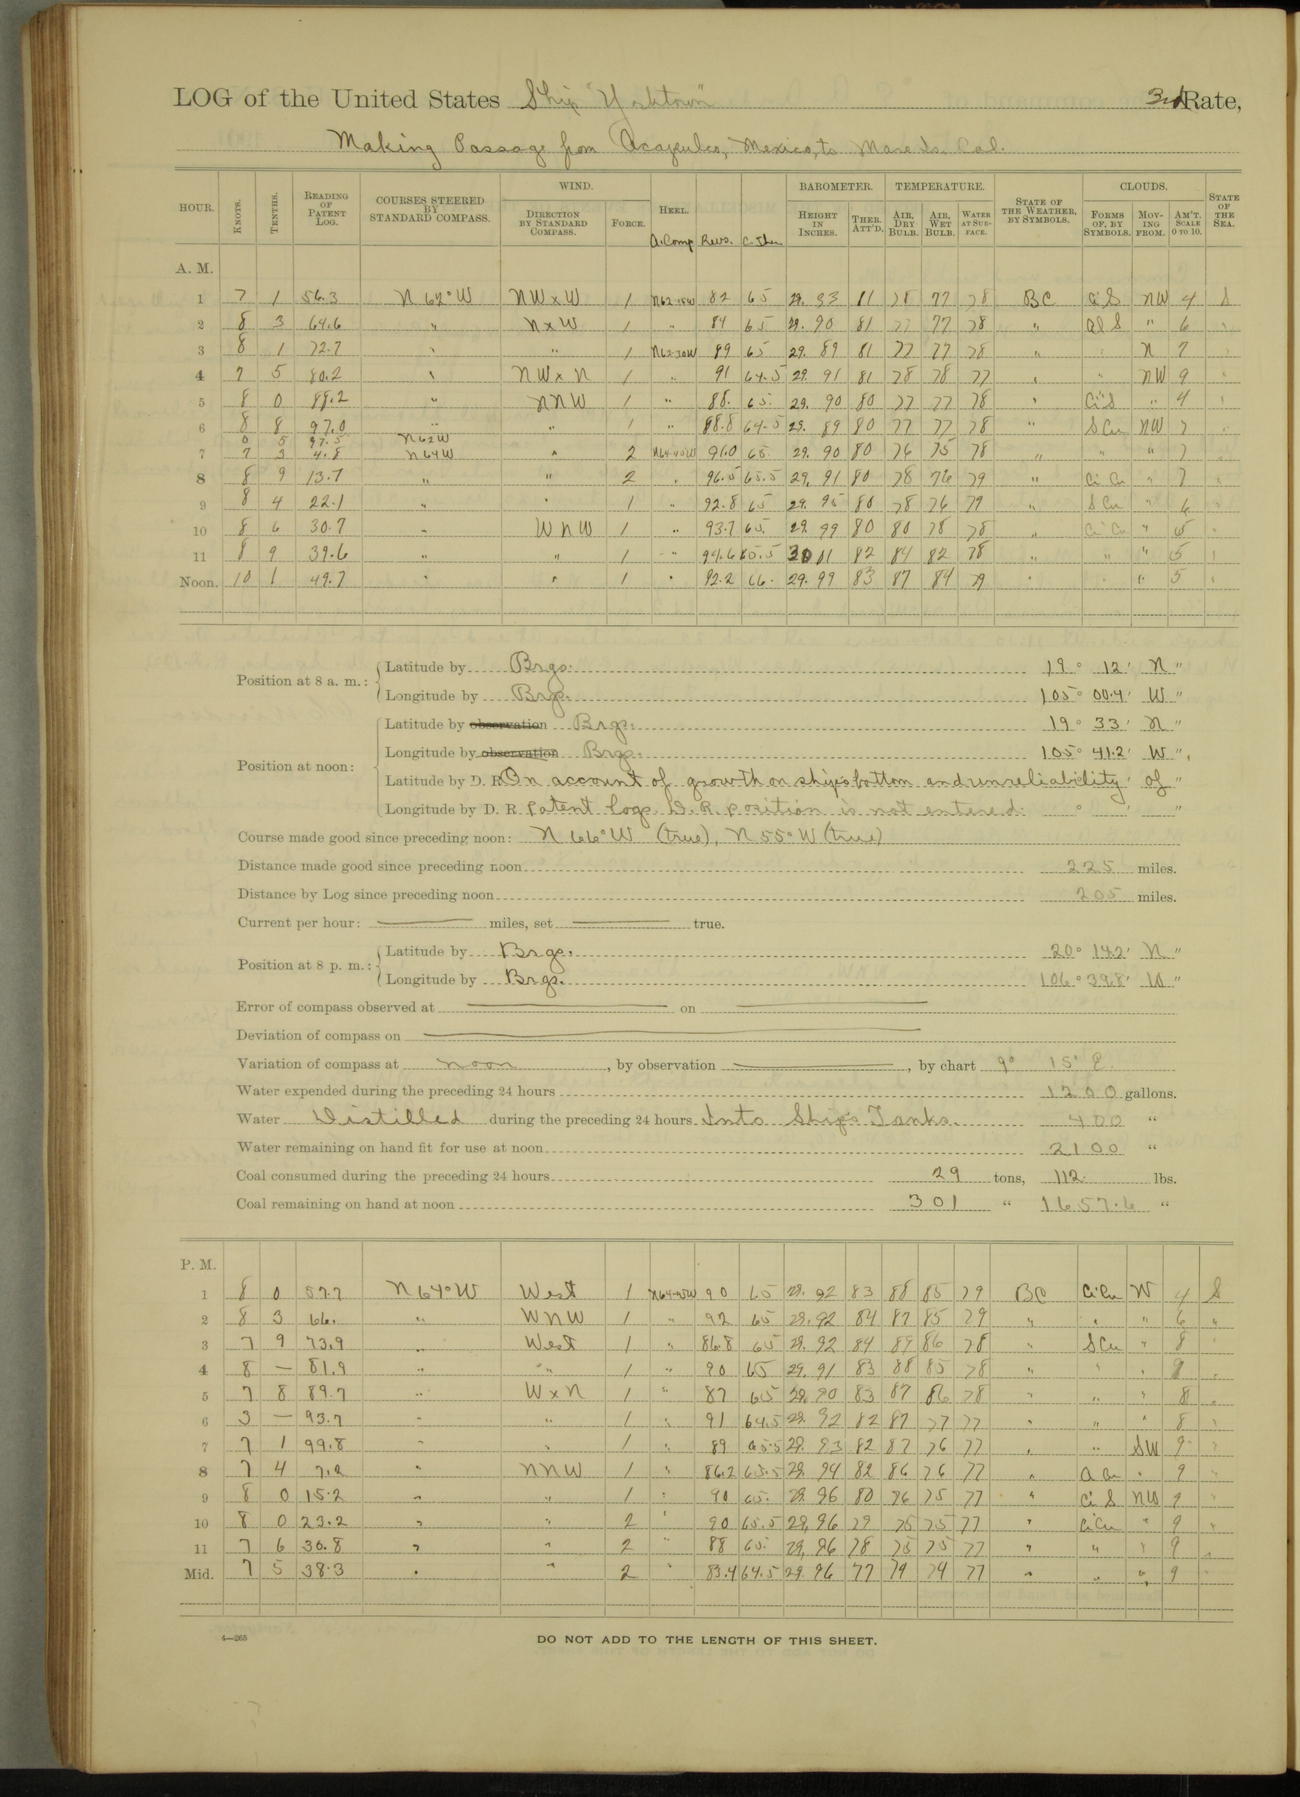 LOG of the United States Ship "Yorktown" 3rd Rate,
Making Passage from Acapulco, Mexico, to Mare Is. Cal.
HOUR. KNOTS. TENTHS. READING OF PATENT LOG. COURSES STEERED BY STANDARD COMPASS. WIND. DIRECTION BY STANDARD COMPASS. FORCE. HEEL. A. Comp Revs. C. Ther BAROMETER. HEIGHT IN INCHES. THER. ATT'D. TEMPERATURE. AIR, DRY BULB. AIR, WET BULB. WATER AT SURFACE. STATE OF THE WEATHER, BY SYMBOLS. CLOUDS. FORMS OF, BY SYMBOLS. MOVING FROM. AM'T. SCALE 0 TO 10. STATE OF THE SEA.
A. M.
1 7 1 56.3 N 62° W NW x W 1 N62-15W 82 65 29. 93 81 78 77 78 BC Ci S NW 4 S
2 8 3 64.6 " N x W 1 " 84 65 29. 90 81 77 77 78 " Al S " 6 "
3 8 1 72.7 " " 1 N62-30W 89 65 29. 89 81 77 77 78 " " N 7 "
4 7 5 80.2 " NW x N 1 " 91 64.5 29. 91 81 78 78 77 " " NW 9 "
5 8 0 88.2 " NNW 1 " 88. 65. 29. 90 80 77 77 78 " Ci S " 4 "
6 8 8 97.0 " " 1 " 88.8 64.5 29. 89 80 77 77 78 " S Cu NW 7 "
0 5 97.5 N62W
7 7 3 4.8 N64W " 2 N64-40W 96.0 65 29. 90 80 76 75 78 " " " 7 "
8 8 9 13.7 " " 2 " 96.5 65.5 29. 91 80 78 76 79 " Ci Cu " 7 "
9 8 4 22.1 " " 1 " 92.8 65 29. 95 80 78 76 79 " S Cu " 6 "
10 8 6 30.7 " WNW 1 " 93.7 65. 29. 99 80 80 78 78 " Ci Cu " 5 "
11 8 9 39.6 " " 1 " 94.6 65.5 30 01 82 84 82 78 " " " 5 "
Noon. 10 1 49.7 " " 1 " 92.2 66. 29. 99 83 87 84 79 " " " 5 "
Position at 8 a. m.: Latitude by Brgs. 19° 12' N "
Longitude by Brgs. 105° 00.4' W "
Position at noon: Latitude by observation Brgs. 19° 33' N "
Longitude by observation Brgs. 105° 41.2' W "
Latitude by D. R. On account of growth on ships bottom and unreliability of "
Longitude by D. R. Patent logs D. R. position is not entered. ° ' "
Course made good since preceding noon: N 66° W (true), N 55° W (true)
Distance made good since preceding noon 225 miles.
Distance by Log since preceding noon 205 miles.
Current per hour: miles, set true.
Position at 8 p. m.: Latitude by Brgs. 20° 14.2' N "
Longitude by Brgs. 106° 39.8' W "
Error of compass observed at on
Deviation of compass on
Variation of compass at noon, by observation , by chart 9° 15' E.
Water expended during the preceding 24 hours 1200 gallons.
Water Distilled during the preceding 24 hours Into Ship's Tanks. 400 "
Water remaining on hand fit for use at noon 2100 "
Coal consumed during the preceding 24 hours 29 tons, 112 lbs.
Coal remaining on hand at noon 301 " 1657.6 "
P. M.
1 8 0 57.7 N 64° W West 1 90 65 29. 92 83 88 85 79 BC Ci Cu W 4 S
2 8 3 66. " WNW 1 " 92 65 29. 92 84 87 85 79 " " " 6 "
3 7 9 73.9 " West 1 " 86.8 65 29. 92 84 89 86 78 " S Cu " 8 "
4 8 — 81.9 " " 1 " 90 65 29. 91 83 88 85 78 " " " "
5 7 8 89.7 " W x N 1 " 87 65 29. 90 83 87 86 78 " " " 8 "
6 3 — 93.7 " " 1 " 91 64.5 29. 92 82 87 77 77 " " " 8 "
7 7 1 99.8 " " 1 " 89 65.5 29. 93 82 87 76 77 " " SW 9 "
8 7 4 7.2 " NNW 1 " 86.2 65.5 29. 94 82 86 76 77 " A Cu " 9 "
9 8 0 15.2 " " 1 " 90 65. 29. 96 80 76 75 77 " Ci S NW 9 "
10 8 0 23.2 " " 2 " 90 65.5 29. 96 79 75 75 77 " Ci Cu " 9 "
11 7 6 30.8 " " 2 " 88 65. 29. 96 78 75 75 77 " " " 9 "
Mid. 7 5 38.3 " " 2 " 83.4 64.5 29. 96 77 74 74 77 " " " 9 "
4—265
DO NOT ADD TO THE LENGTH OF THIS SHEET.